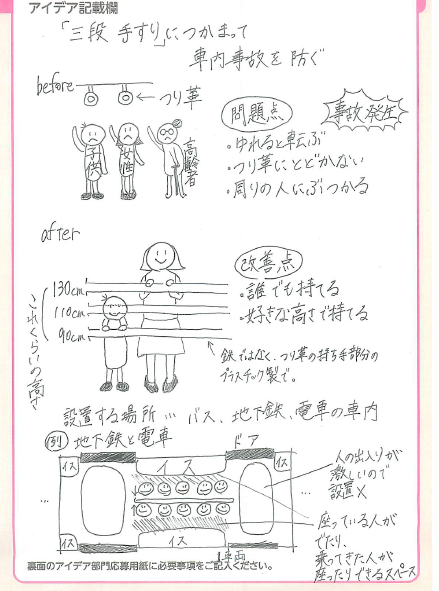 アイデア記載欄
「三段 手すり」につかまって
車内事故を防ぐ
before
← つり革
子供
女性
高齢者
問題点
事故発生
・ゆれると転ぶ
・つり革にとどかない
・周りの人にぶつかる
after
改善点
130cm
110cm
90cm
これくらいの高さ
・誰でも持てる
・好きな高さで持てる
鉄ではなく、つり革の持ち手部分の
プラスチック製で。
設置する場所 … バス、地下鉄、電車の車内
例 地下鉄と電車
ドア
イス
イス
イス
イス
イス
イス
…
…
人の出入りが
激しいので
設置×
座っている人が
でたり、
乗ってきた人が
座ったりできるスペース
1車両
裏面のアイデア部門応募用紙に必要事項をご記入ください。